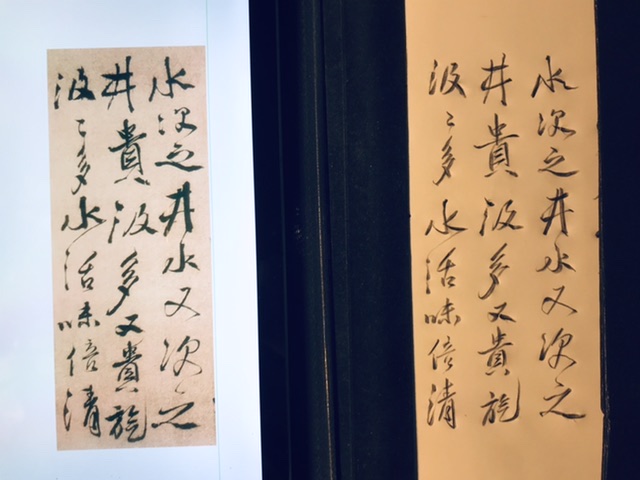 水次之井水又次之
井貴汲多又貴旋
汲〻多水活味倍清
水次之井水又次之
井貴汲多又貴旋
汲〻多水活味倍清